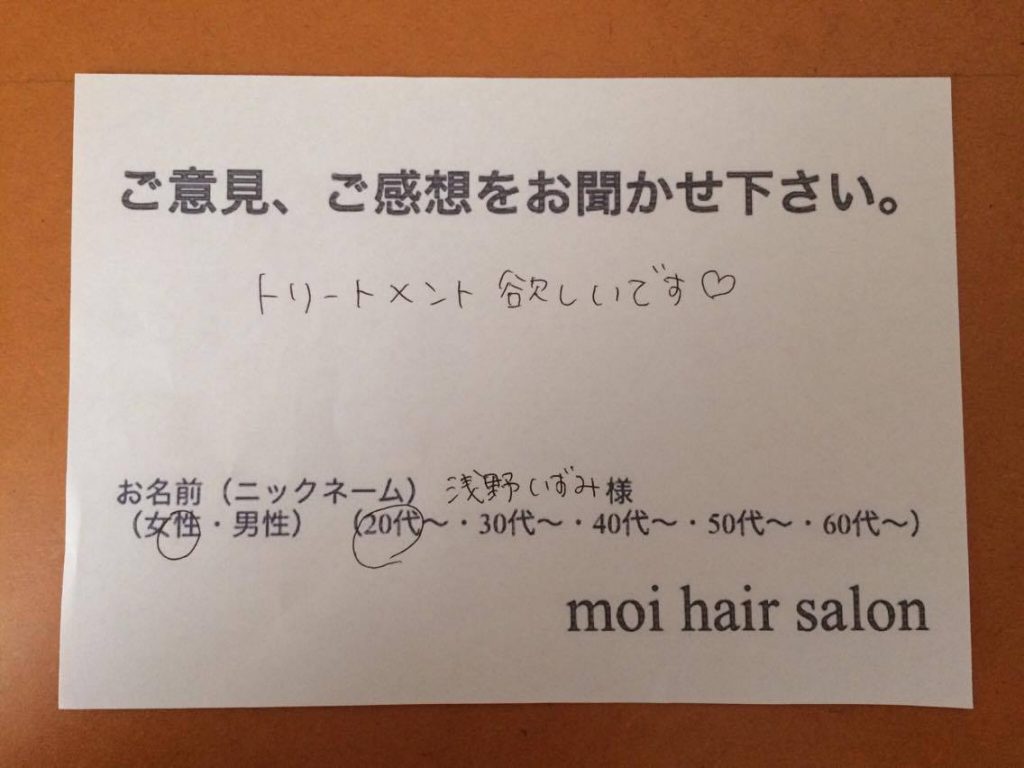 ご意見、ご感想をお聞かせ下さい。
トリートメント 欲しいです♡
お名前（ニックネーム） 浅野いずみ様
（女性・男性） （20代～・30代～・40代～・50代～・60代～）
moi hair salon